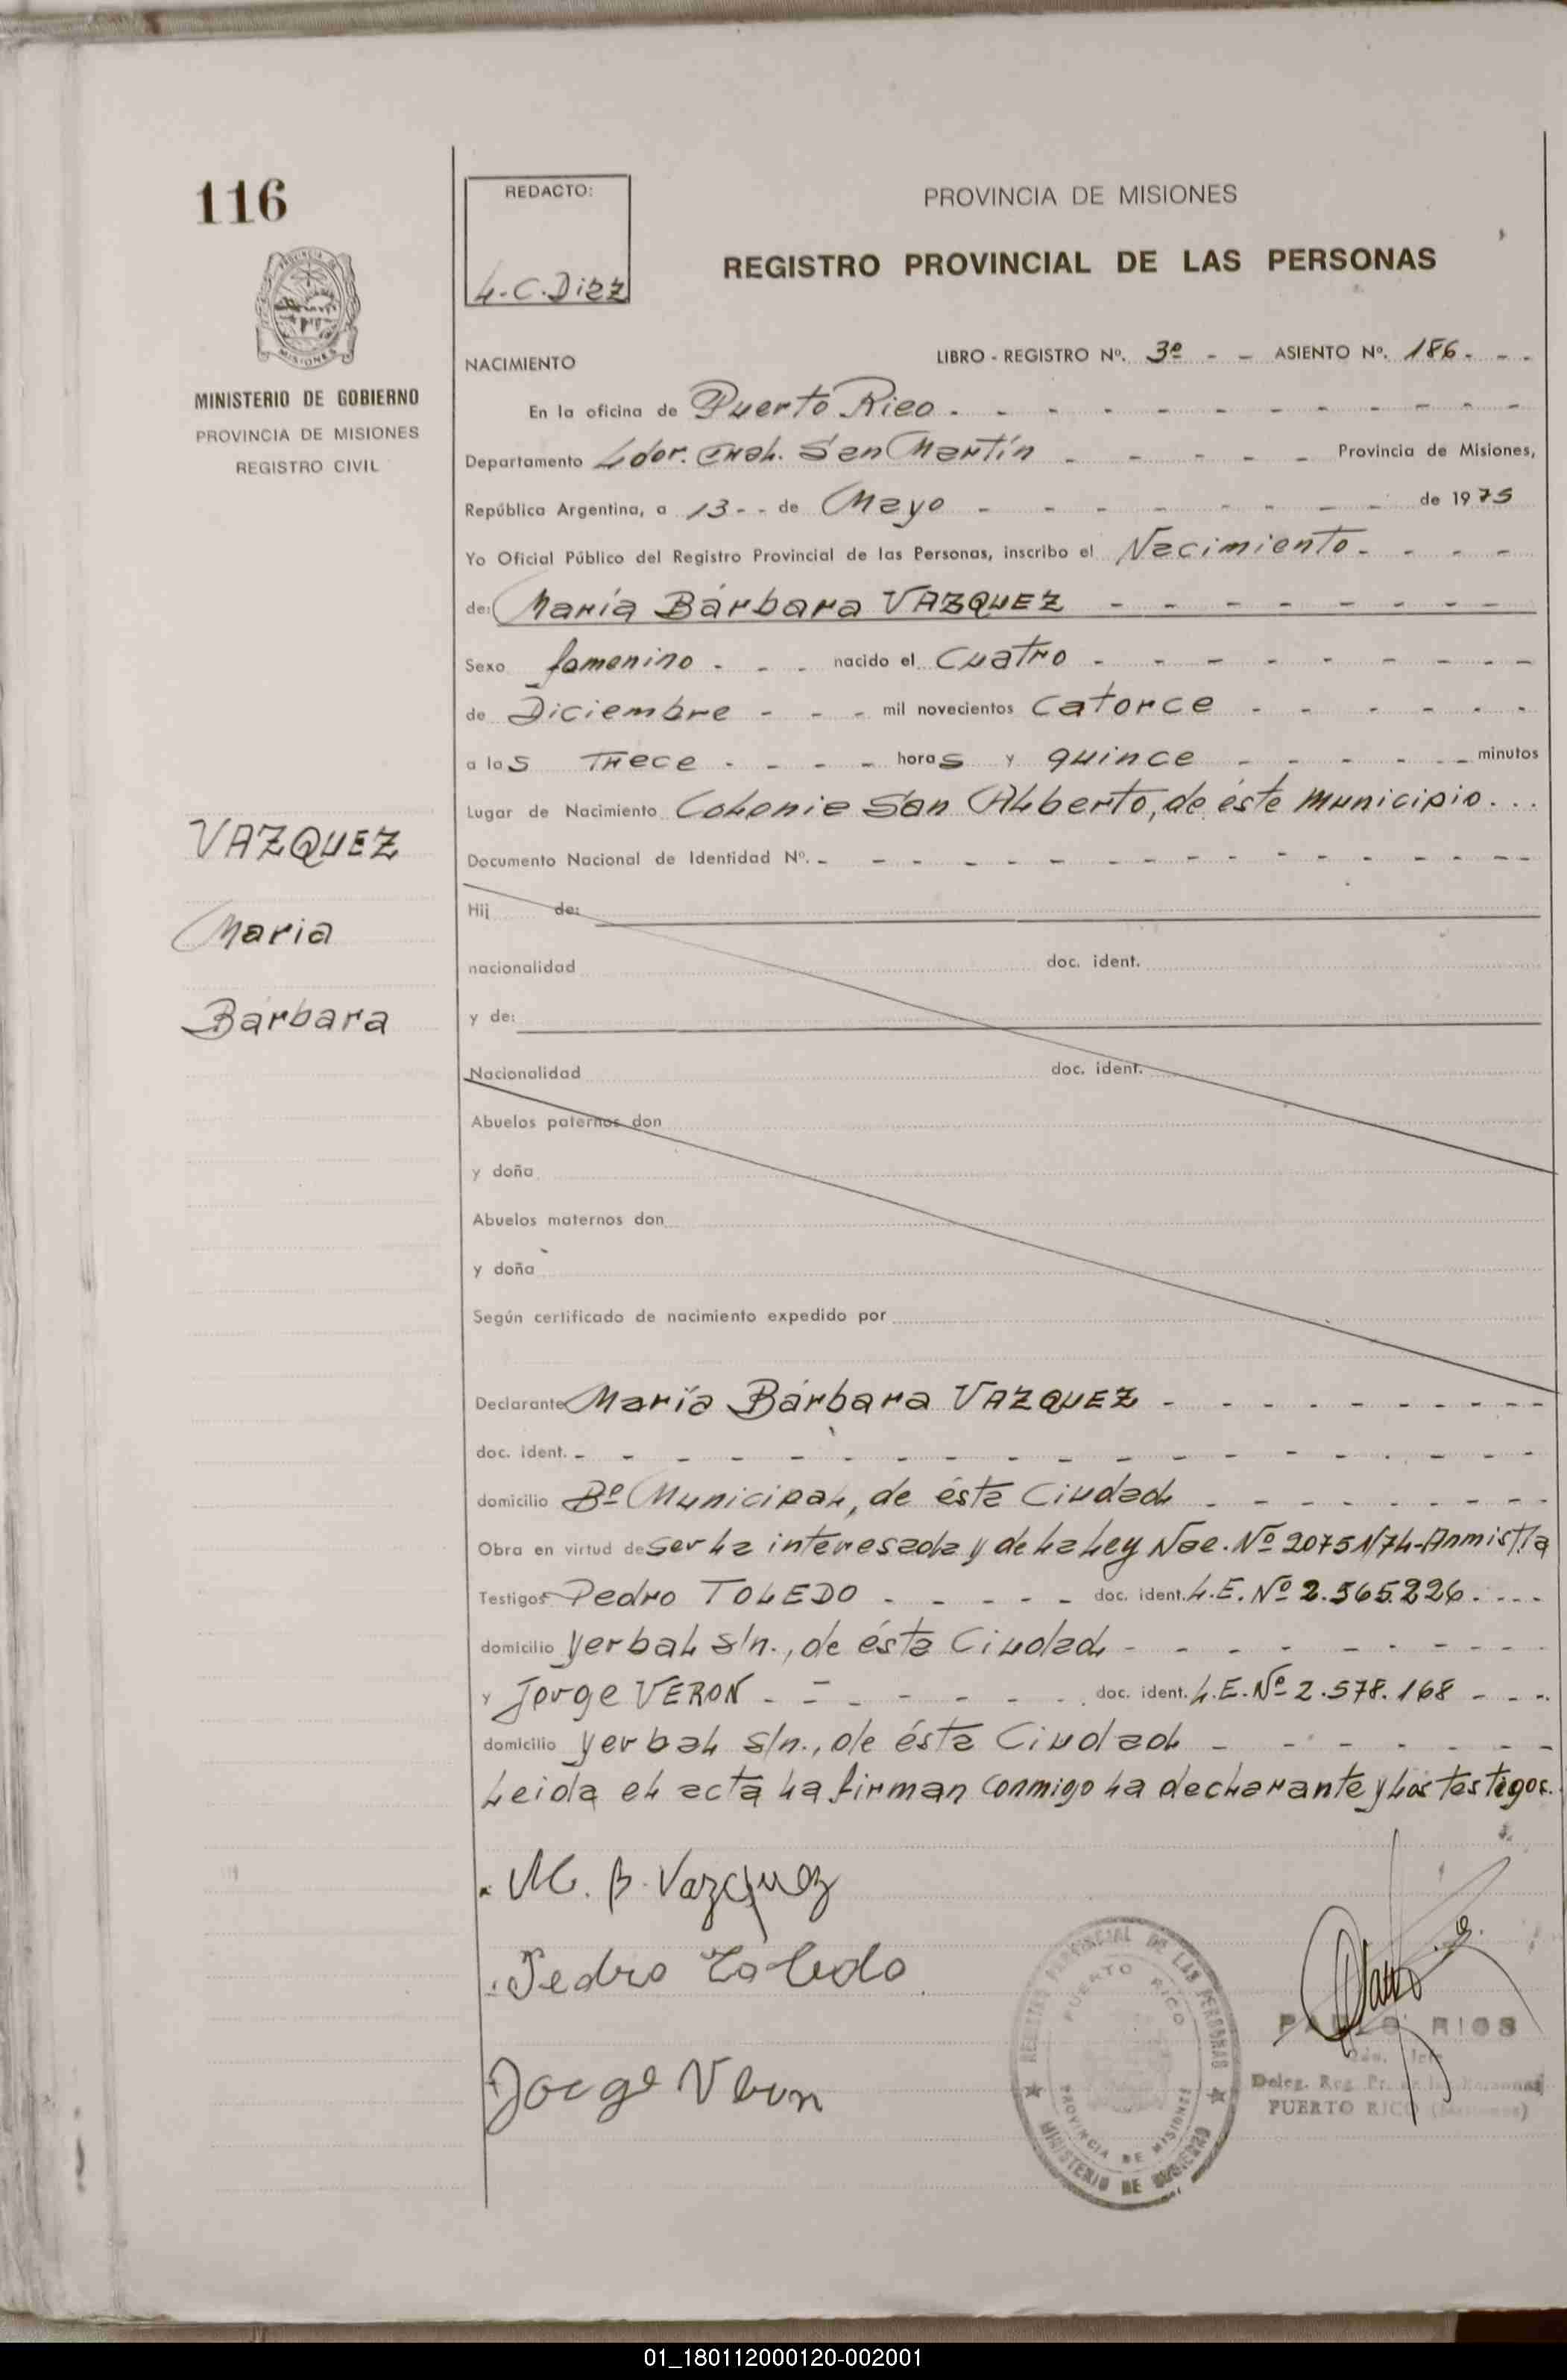 116
MINISTERIO DE GOBIERNO
PROVINCIA DE MISIONES
REGISTRO CIVIL
VAZQUEZ
Maria
Bárbara
REDACTO:
L.C.Diez
PROVINCIA DE MISIONES
REGISTRO PROVINCIAL DE LAS PERSONAS
NACIMIENTO
LIBRO - REGISTRO Nº. 3º - - ASIENTO Nº. 186. - -
En la oficina de Puerto Rico. - - - - - - - - - -
Departamento Ldor. Gral. San Martín - - - - - Provincia de Misiones,
República Argentina, a 13 - - de Mayo - - - - - - - - de 1975
Yo Oficial Público del Registro Provincial de las Personas, inscribo el Nacimiento. - - -
de: María Bárbara VAZQUEZ - - - - - - - -
Sexo femenino - - - nacido el Cuatro - - - - - - - -
de Diciembre - - - mil novecientos Catorce - - - - - -
a las Trece - - - - horas y quince - - - - - minutos
Lugar de Nacimiento Colonia San Alberto, de éste Municipio. . .
Documento Nacional de Identidad Nº. - - - - - - - - - - - - - - -
Hij de:
nacionalidad doc. ident.
y de:
Nacionalidad doc. ident.
Abuelos paternos don
y doña
Abuelos maternos don
y doña
Según certificado de nacimiento expedido por
Declarante María Bárbara VAZQUEZ - - - - - - - - -
doc. ident. - - - - - - - - - - - - - - - - - -
domicilio Bº Municipal, de ésta Ciudad - - - - - - - -
Obra en virtud de ser la interesada y de la Ley Nac. Nº
Testigos Pedro TOLEDO - - - - - doc. ident. L.E. Nº 2.565.226. - - -
domicilio Yerbal s/n., de ésta Ciudad - - - - - - - -
y Jorge VERON - - - - - - - doc. ident. L.E. Nº 2.578.168 - - -
domicilio Yerbal s/n., de ésta Ciudad - - - - - - -
Leida el acta la firman conmigo la declarante y los testigos.
M. B. Vazquez
Pedro Toledo
Jorge Veron
REGISTRO PROVINCIAL DE LAS PERSONAS
PUERTO RICO
PROVINCIA DE MISIONES
MINISTERIO DE GOBIERNO
PABLO RIOS
Deleg. Reg. Pr. de las Personas
PUERTO RICO (Misiones)
01_180112000120-002001